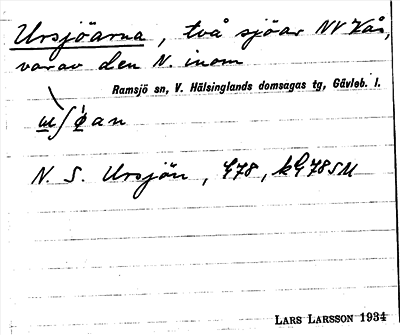 Ursjöarna, två sjöar NV Kås,
varav den N. inom
Ramsjö sn, V. Hälsinglands domsagas tg, Gävleb. l.
N. S. Ursjön, G78, kG78SM
LARS LARSSON 1934